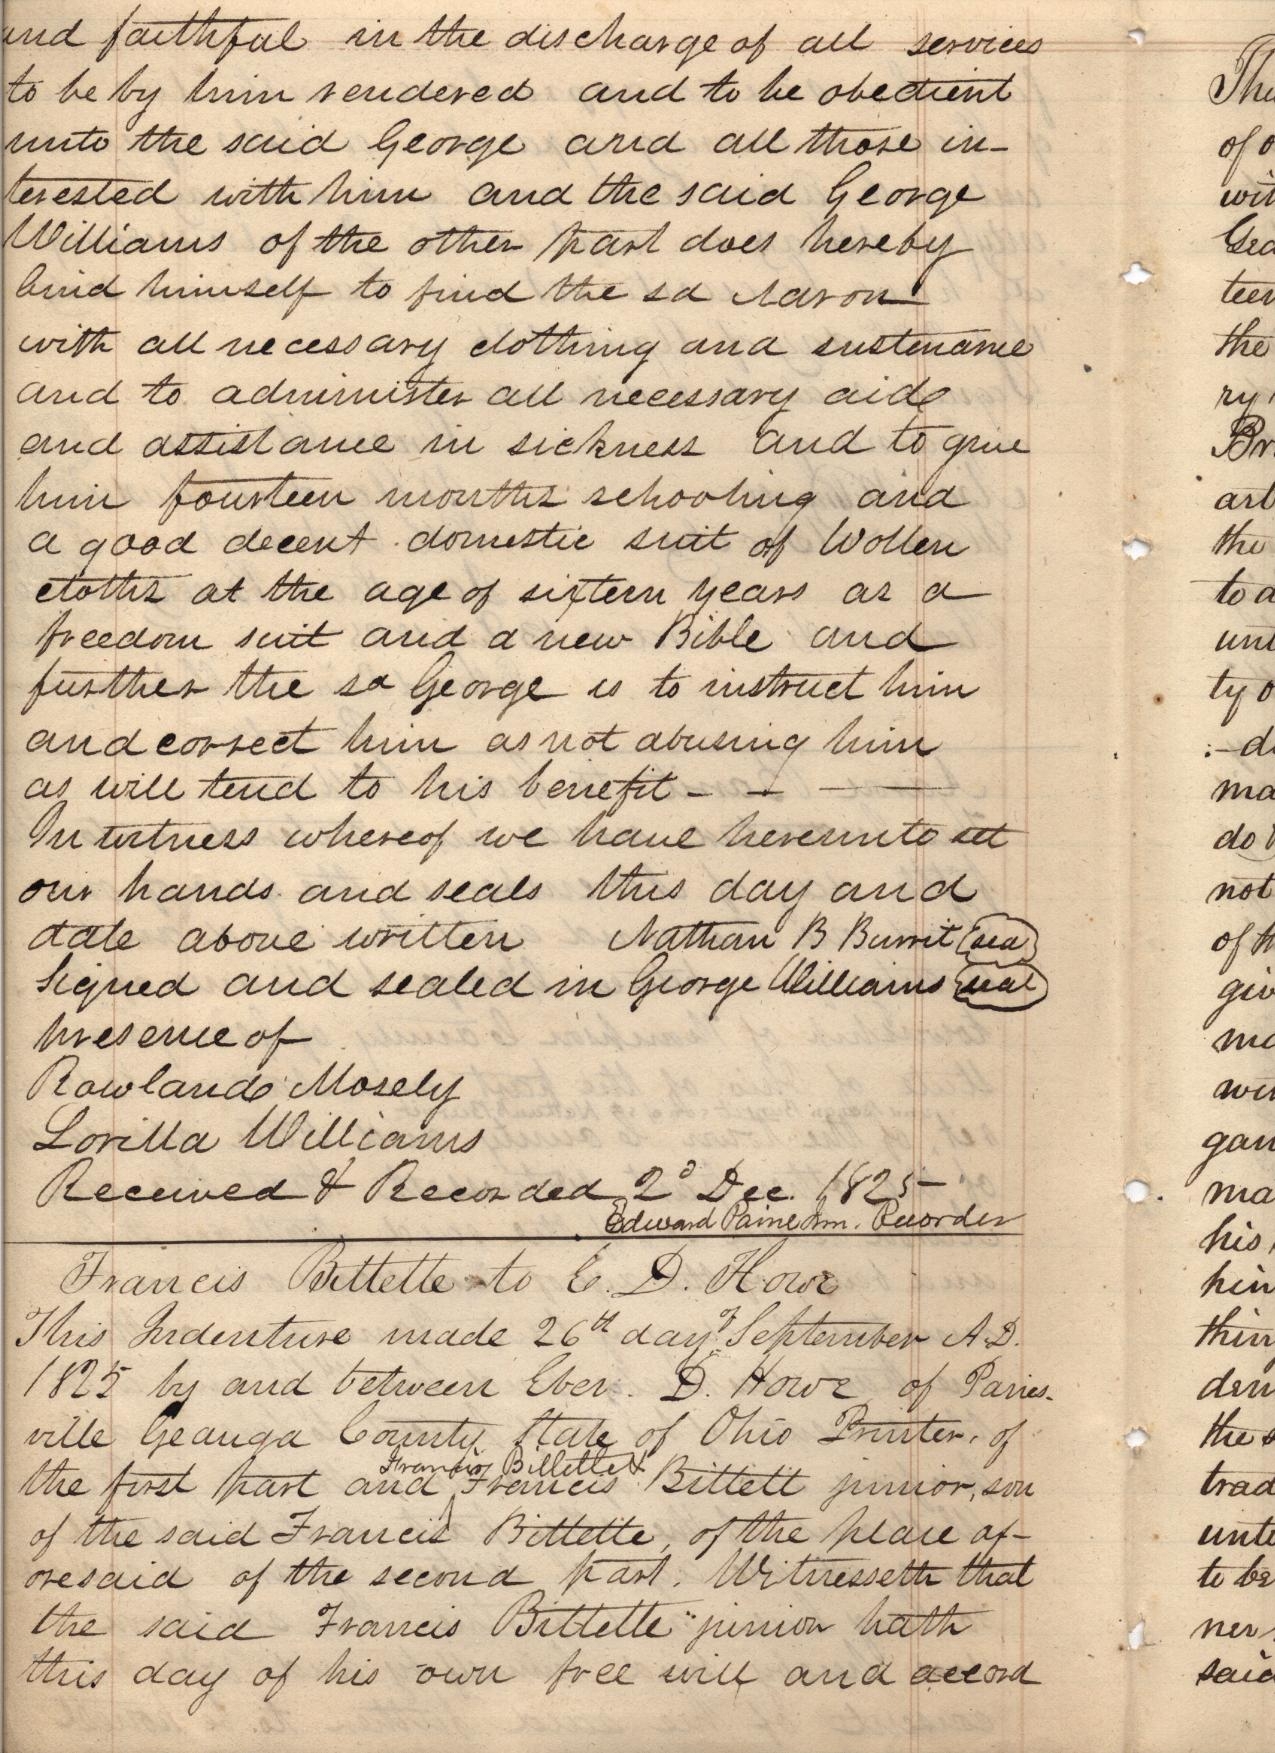 and faithful in the discharge of all services
to be by him rendered and to be obedient
unto the said George and all those in-
terested with him and the said George
Williams of the other part does hereby
bind himself to find the sd Aaron
with all necessary clothing and sustenance
and to administer all necessary aid
and assistance in sickness and to give
him fourteen months schooling and
a good decent domestic suit of Wollen
cloths at the age of sixteen years as a
freedom suit and a new Bible and
further the sd George is to instruct him
and correct him as not abusing him
as will tend to his benefit - - - —
In witness whereof we have hereunto set
our hands and seals this day and
date above written Nathan B Burrit seal
Signed and sealed in George Williams seal
presence of
Rowland Mosely
Lorilla Williams
Received & Recorded 2d Dec. 1825-
Edward Paine Jun. Recorder
Francis Billette to E. D. Howe
This Indenture made 26th day of September A.D.
1825 by and between Eber. D. Howe of Panies-
ville Geauga County State of Ohio Printer, of
Francis Billette &
the first part and Francis Billett junior, son
of the said Francis Billette, of the place af-
oresaid of the second part. Witnesseth that
the said Francis Billette junior hath
this day of his own free will and accord
The
of o
wit
Gea
teen
the
ry
Br
art
the
to a
unt
ty o
:-d
ma
do
not
of th
giv
ma
wi
gan
ma
his
him
thin
den
the s
trad
unto
to be
ner
said